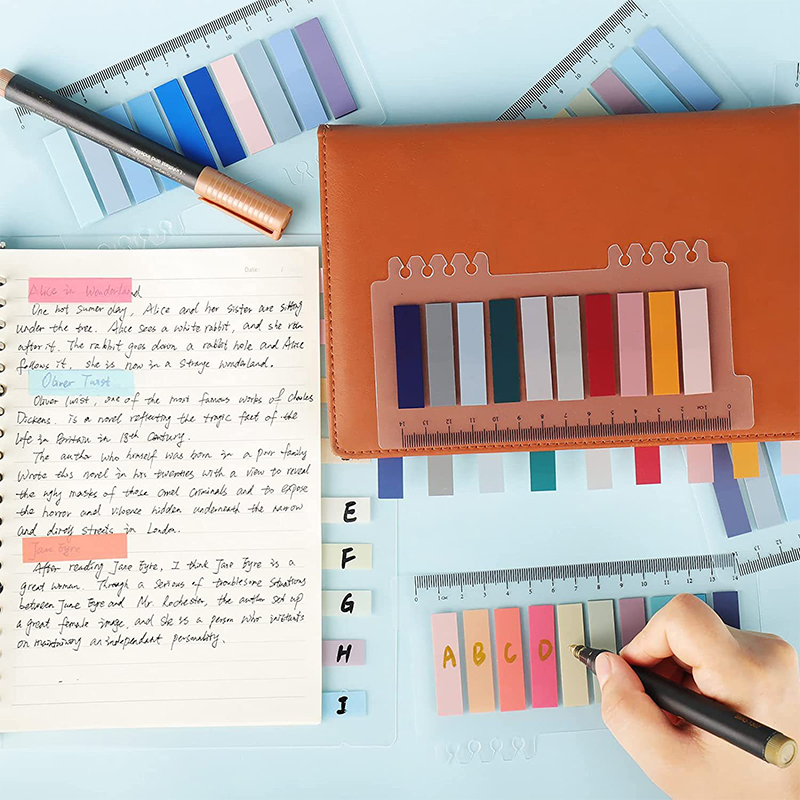 Date: /
Alice in Wonderland
One hot sumer day, Alice and her sister are sitting
under the tree. Alice sees a white rabbit, and she ran
after it. The rabbit goes down a rabbit hole and Alice
follows it, she is now in a strange wonderland.
Oliver Twist
Oliver Twist, one of the most famous works of Charles
Dickens. is a novel reflecting the tragic fact of the
life in Britain in 18th Century.
The author who himself was born in a poor family
wrote this novel in his twenties with a view to reveal
the ugly masks of those cruel criminals and to expose
the horror and violence hidden underneath the narrow
and dirty streets in London.
Jane Eyre
After reading Jane Eyre, I think Jane Eyre is a
great woman. Through a serious of troublesome situations
between Jane Eyre and Mr. Rochester, the author set up
a great female image, and she is a person who insists
on maintaining an independant personality.
E
F
G
H
I
14 13 12 11 10 9 8 7 6 5 4 3 2 1cm 0
0 1cm 2 3 4 5 6 7 8 9 10 11 12 13 14
A B C D